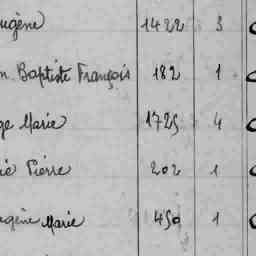 ugène 1422 3
n Baptiste François 182 1
ge Marie 1725 4
ié Pierre 202 1
gène Marie 450 1